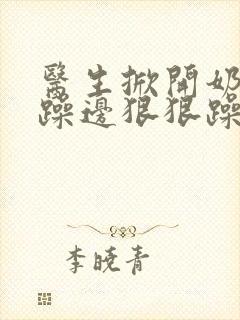 醫生掀開奶
躁邊狠狠躁
李曉青